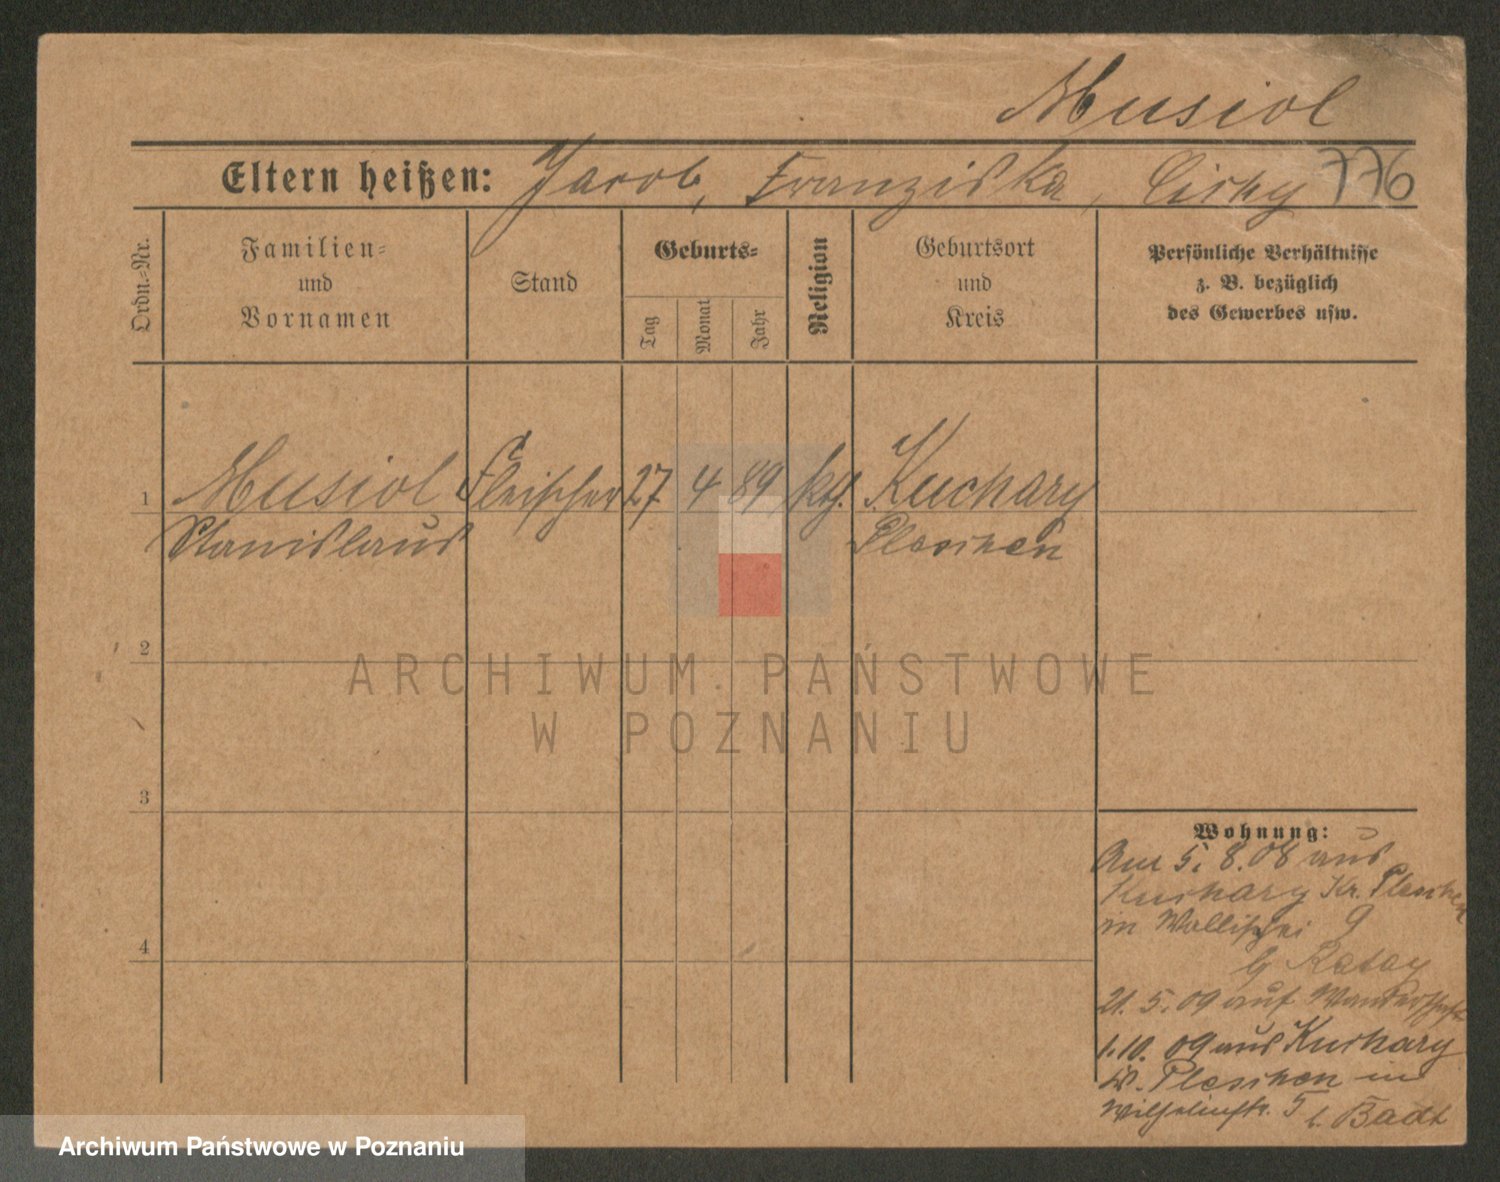 Musiol
Eltern heißen: Jacob, Franziska, Cichy 776
Ordn.-Nr.
Familien-
und
Vornamen
Stand
Geburts-
Tag
Monat
Jahr
Religion
Geburtsort
und
Kreis
Persönliche Verhältnisse
z. B. bezüglich
des Gewerbes usw.
1 Musiol Fleischer 27 4 89 kth. Kuchary
Stanislaus Pleschen
2
3
4
Wohnung:
Am 5. 8. 08 aus
Kuchary Kr. Pleschen
in Wallischei 9
b Ratay
21. 5. 09 auf Wanderschaft
1.10. 09 aus Kuchary
Kr. Pleschen in
Wilhelmstr. 5 b. Badt
ARCHIWUM PAŃSTWOWE
W POZNANIU
Archiwum Państwowe w Poznaniu